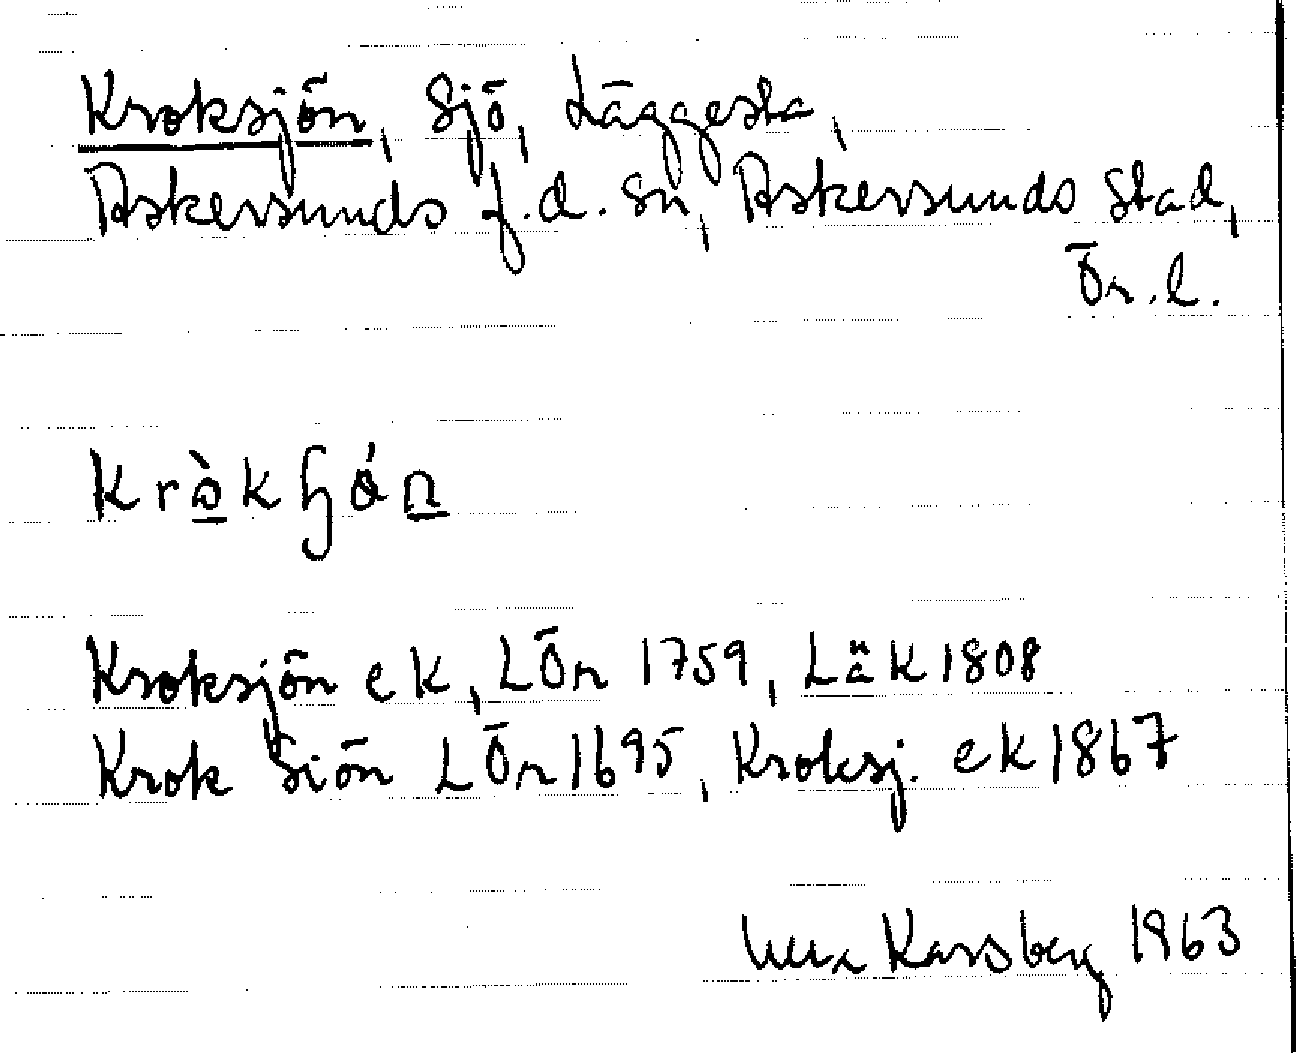 Kroksjön, Sjö, Läggesta,
Askersunds f.d. sn, Askersunds stad,
Ör.l.
Kroksjön ek, LÖr 1759, Läk 1808
Krok Siön LÖr 1695, Kroksj. ek 1867
Ulla Karsberg 1963